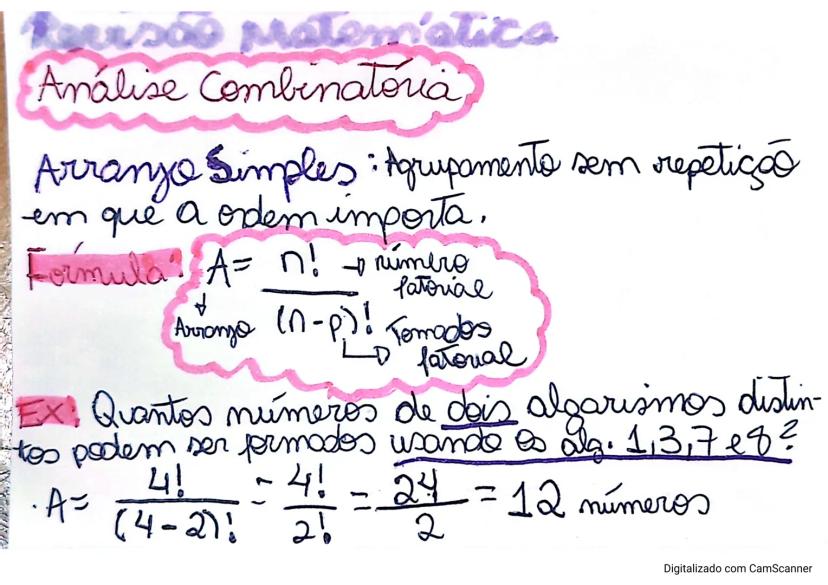 Revisão Matemática
Análise Combinatória
Arranjo Simples: Agrupamento sem repetição
em que a ordem importa.
Fórmula: A = n! → número fatorial
(n-p)! → Tomados fatorial
↓ Arranjo
Ex: Quantos números de dois algarismos distin-
tos podem ser formados usando os alg. 1,3,7 e 8?
· A = 4!/(4-2)! = 4!/2! = 24/2 = 12 números
Digitalizado com CamScanner